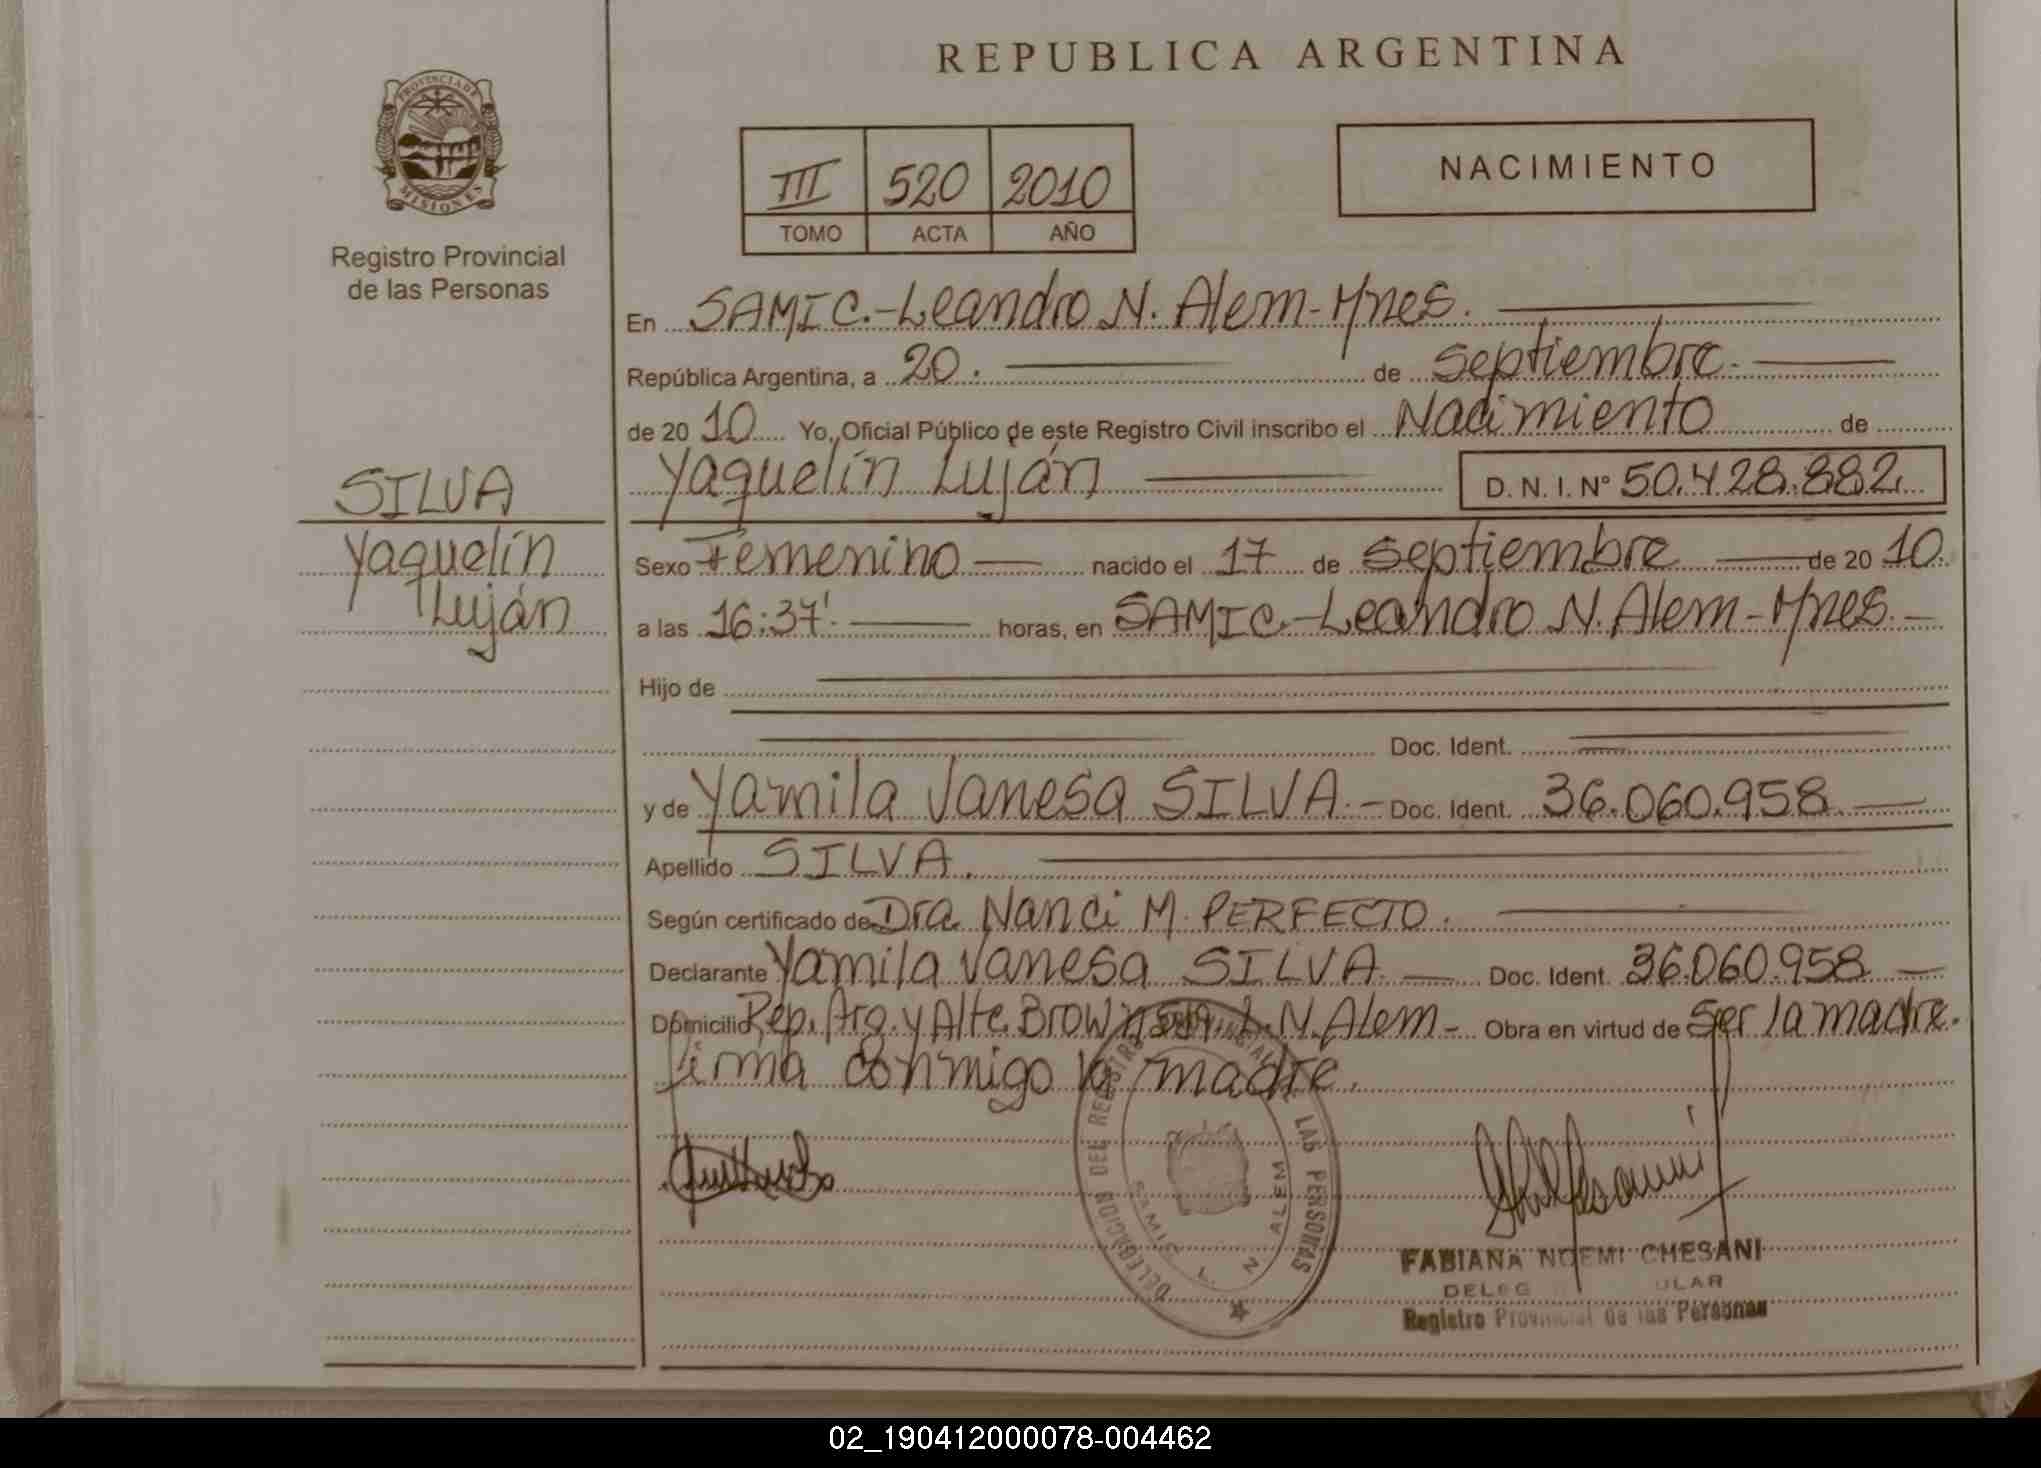 REPUBLICA ARGENTINA
PROVINCIA DE
MISIONES
Registro Provincial
de las Personas
III 520 2010
TOMO ACTA AÑO
NACIMIENTO
En SAMIC.-Leandro N. Alem-Mnes.
República Argentina, a 20. de Septiembre.
de 2010 Yo, Oficial Público de este Registro Civil inscribo el Nacimiento de
Yaquelín Luján D. N. I. Nº 50.428.882.
SILVA
Yaquelín
Luján
Sexo Femenino nacido el 17 de Septiembre de 2010.
a las 16:37'. horas, en SAMIC.-Leandro N. Alem-Mnes.
Hijo de
Doc. Ident.
y de Yamila Vanesa SILVA.- Doc. Ident. 36.060.958.
Apellido SILVA.
Según certificado de Dra. Nanci M. PERFECTO.
Declarante Yamila Vanesa SILVA. Doc. Ident. 36.060.958
Domicilio Rep. Arg. y Alte. Brown S/N, L. N. Alem- Obra en virtud de Ser la madre.
firma conmigo la madre.
DELEGACION DEL REGISTRO PROVINCIAL DE LAS PERSONAS
SAMIC L. N. ALEM
FABIANA NOEMI CHESANI
Registro Provincial de las Personas
02_190412000078-004462